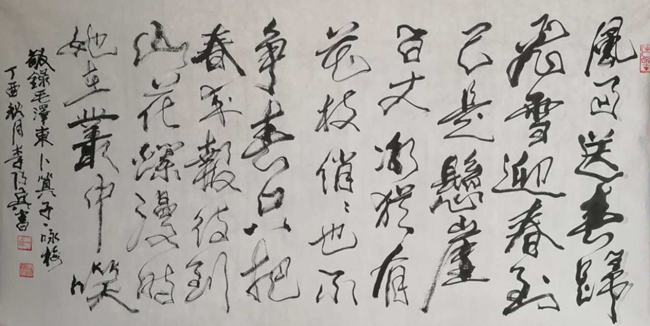 風雨送春歸
飛雪迎春到
已是懸崖
百丈冰猶有
花枝俏〻也不
争春只把
春来報待到
山花爛漫時
她在叢中笑
敬錄毛澤東卜算子·咏梅
丁酉秋月李書